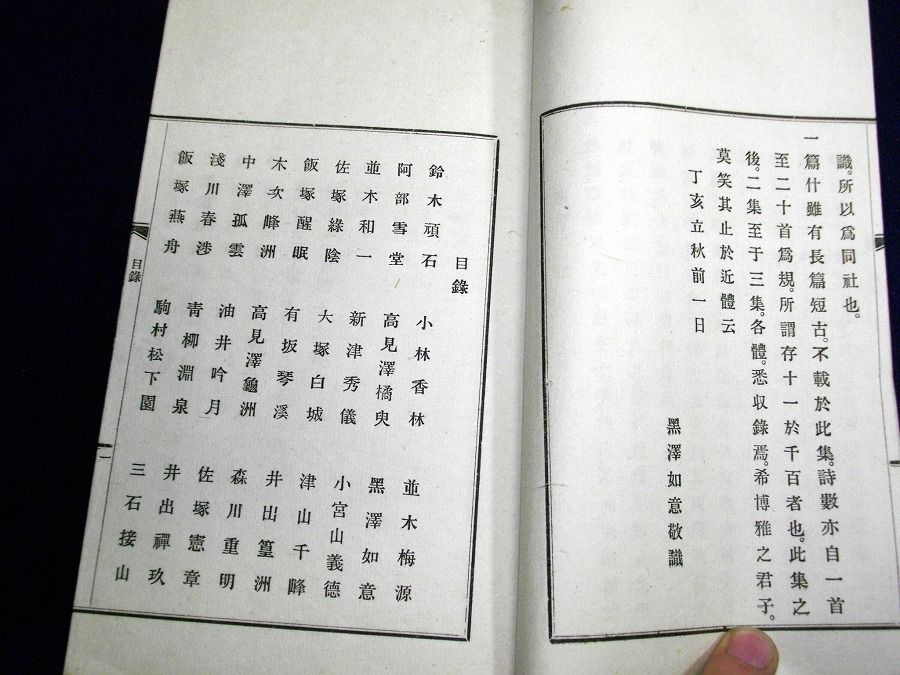 識。所以爲同社也。
一篇什雖有長篇短古。不載於此集。詩數亦自一首
至二十首爲規。所謂存十一於千百者也。此集之
後。二集至于三集。各體。悉収錄焉。希博雅之君子。
莫笑其止於近體云
丁亥立秋前一日
黑澤如意敬識
目錄
鈴木頑石 小林香林 並木梅源
阿部雪堂 高見澤橘叟 黑澤如意
並木和一 新津秀儀 小宮山義德
佐塚綠陰 大塚白城 津山千峰
飯塚醒眠 有坂琴溪 井出篁洲
木次峰洲 高見澤龜洲 森川重明
中澤孤雲 油井吟月 佐塚憲章
淺川春涉 青柳淵泉 井出禪玖
飯塚燕舟 駒村松下園 三石接山
目錄
一